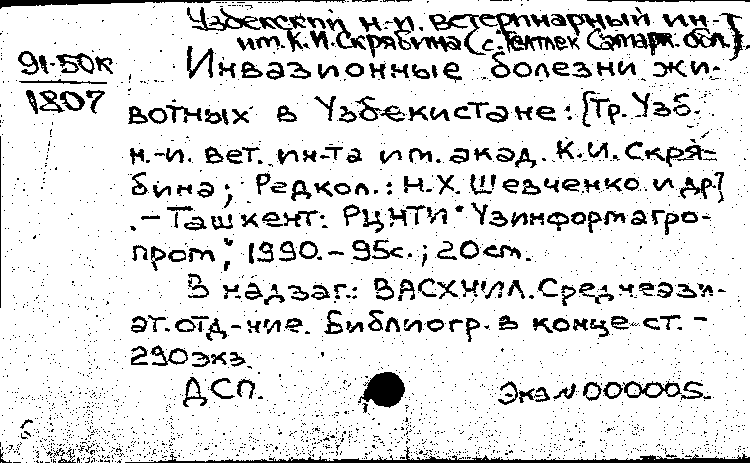 Узбекский н.-и. ветеринарный ин-т
им. К.И. Скрябина (с. Тайляк Самарк. обл.).
91-50к
1807
Инвазионные болезни жи-
вотных в Узбекистане: [Тр. Узб.
н.-и. вет. ин-та им. акад. К.И. Скря-
бина; Редкол.: Н.Х. Шевченко и др.]
.- Ташкент: РЦНТИ "Узинформагро-
пром", 1990. - 95с.; 20см.
В надзаг.: ВАСХНИЛ. Среднеази-
ат. отд-ние. Библиогр. в конце ст. -
290экз.
ДСП.
Экз N 000005.